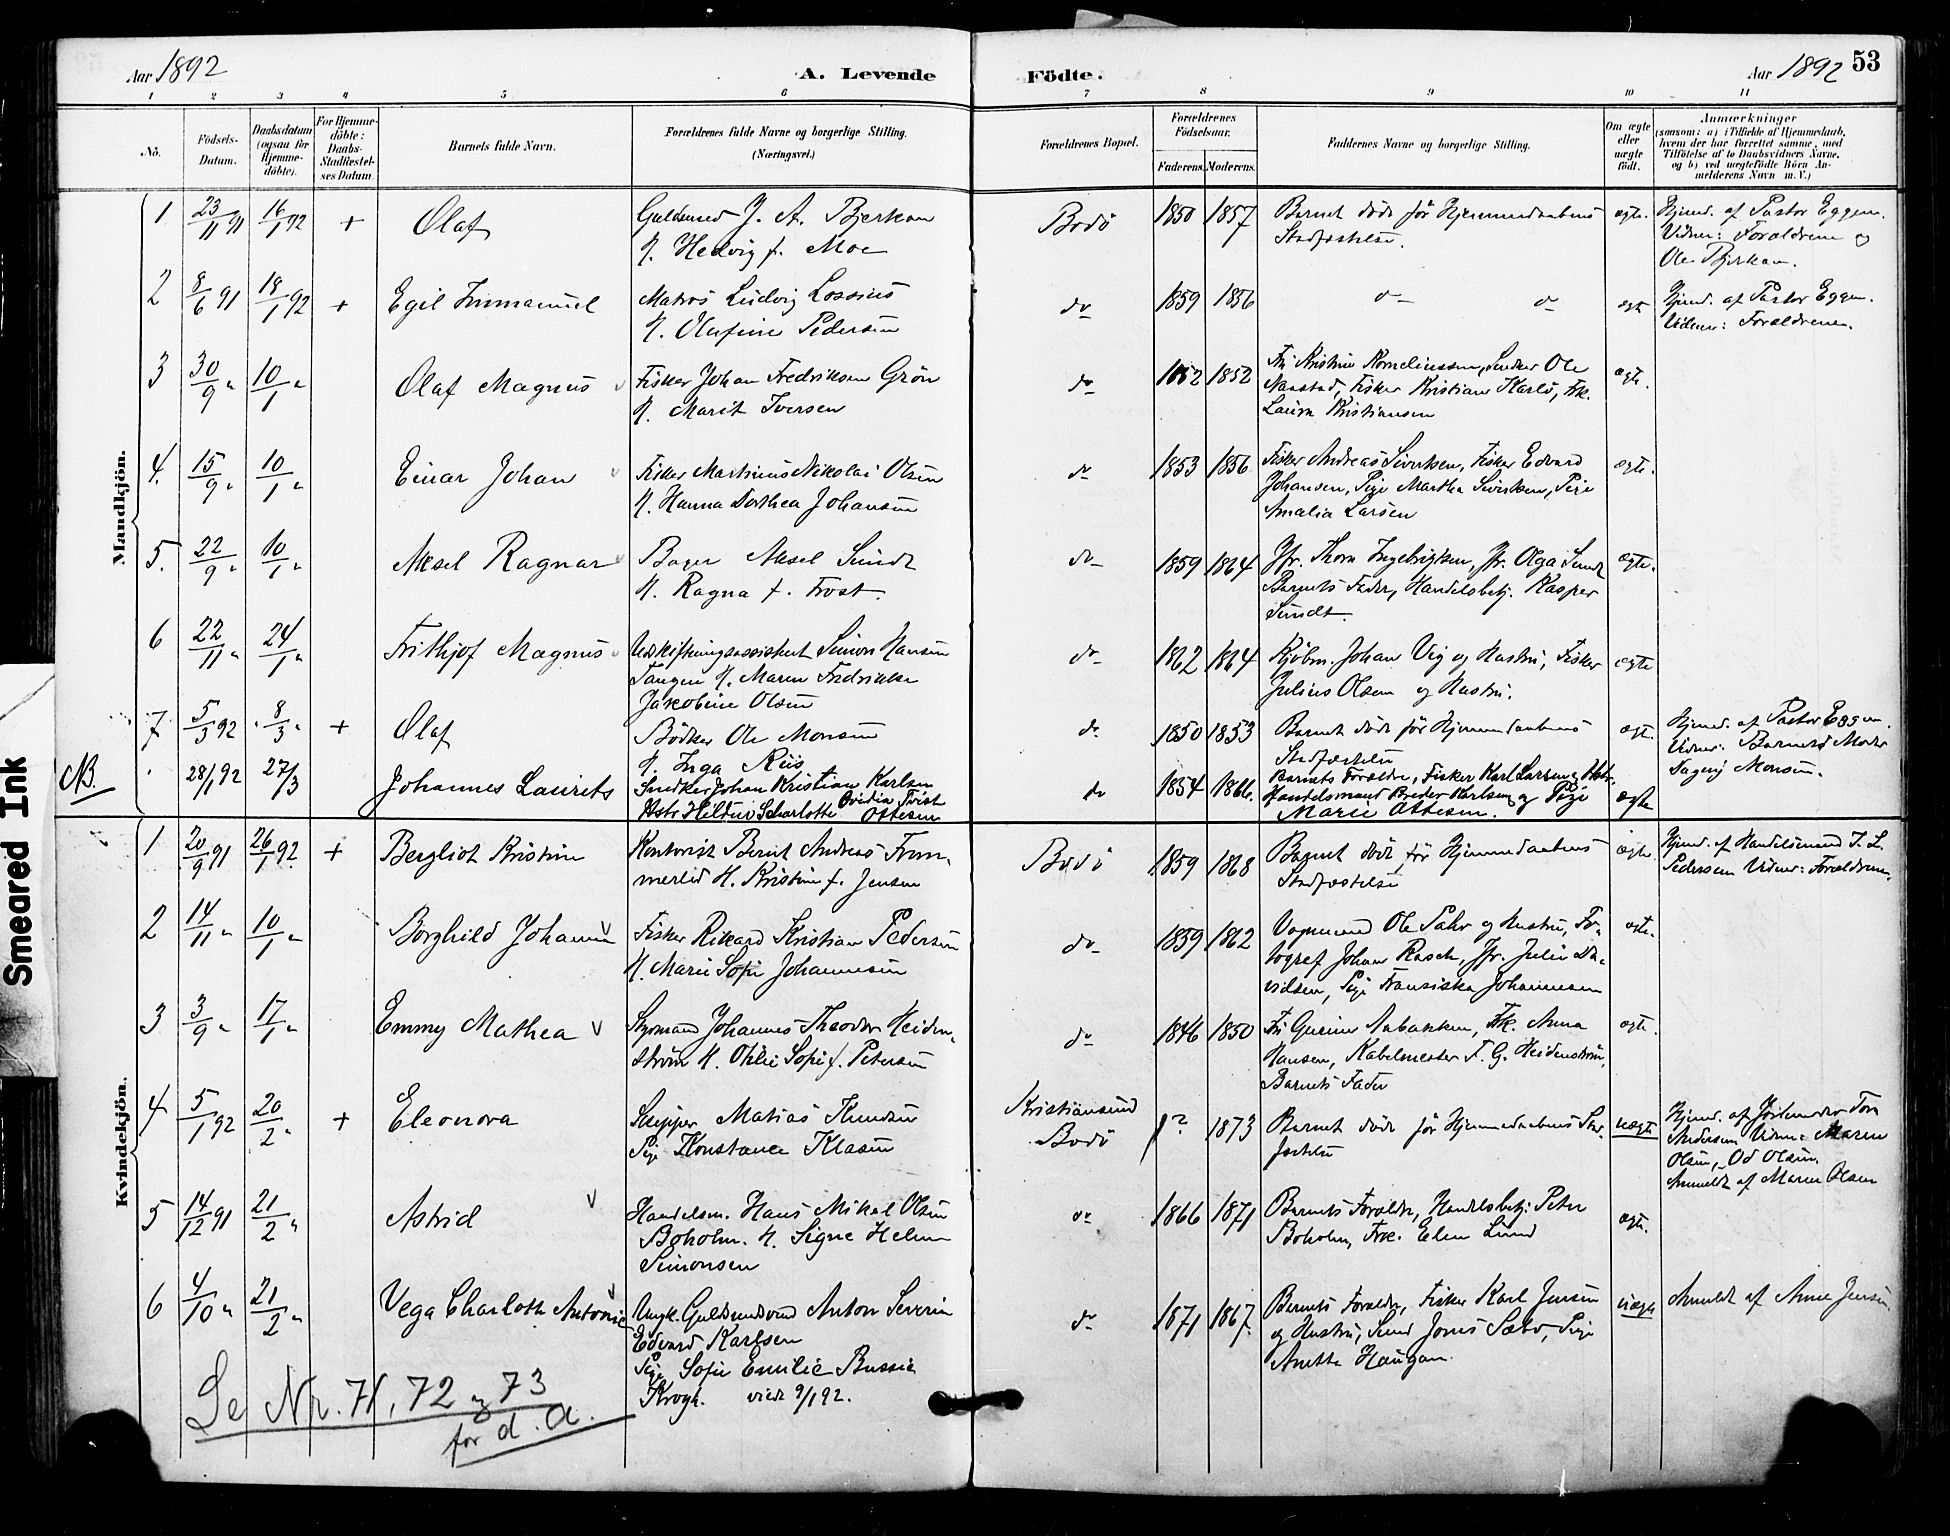 Aar 1892
A. Levende Födte.
Aar 1892 53
1 2 3 4 5 6 7 8 9 10 11
No.
Födsels-Datum.
Daabsdatum (ogsaa for Hjemmedöbte).
For Hjemmedöbte: Daabs-Stadfæstelses Datum.
Barnets fulde Navn.
Forældrenes fulde Navne og borgerlige Stilling. (Næringsvei.)
Forældrenes Bopæl.
Forældrenes Födselsaar.
Faderens. Moderens.
Faddernes Navne og borgerlige Stilling.
Om ægte eller uægte födt.
Anmærkninger (saasom: a) i Tilfælde af Hjemmedaab, hvem der har forrettet samme, med Tilföielse af to Daabsvidners Navne, og b) ved uægtefödte Börn Anmelderens Navn m.V.)
Mandkjön.
1 23/11 91 16/1 92 + Olaf
Guldsmed J. A. Bjerkan
H. Hedvig f. Moe
Bodö 1850 1857
Barnet döde för Hjemmedaabens
Stadfæstelse.
ægte.
Hjemd. af Pastor Eggen.
Vidner: Forældrene og
Ole Bjerkan.
2 8/6 91 18/1 92 + Egil Immanuel
Matros Ludvig Lossius
H. Olufine Pedersen
do 1859 1856 do do ægte
Hjemd. af Pastor Eggen.
Vidner: Forældrene.
3 30/9 " 10/1 " Olaf Magnus
Fisker Johan Fredriksen Grön
H. Marit Iversen
do 1852 1852
Fru Kristine Korneliussen, Snedker Ole
Naastad, Fisker Kristian Karlö, Frk.
Laura Kristiansen
ægte.
4. 15/9 " 10/1 " Einar Johan
Fisker Martinus Nikolai Olsen
H. Hanna Dorthea Johansen
do 1853 1856
Fisker Andreas Sivertsen, Fisker Edvard
Johansen, Pige Martha Sivertsen, Pige
Amalia Larsen
ægte.
5. 22/9 " 10/1 " Aksel Ragnar
Bager Aksel Sundt
H. Ragna f. Frost.
do 1859 1864
Jfr. Thora Ingebrigtsen, Jfr. Olga Sundt
Barnets Fader, Handelsbetj. Kasper
Sundt.
ægte.
6 22/11 " 24/1 " Frithjof Magnus
Udskiftningsassistent Simon Hansen
Tangen H. Maren Fredrikke
Jakobine Olsen
do 1862 1864
Kjöbm. Johan Vig og Hustru, Fisker
Julius Olsen og Hustru.
ægte
7 5/3 92 8/3 " + Olaf
Bödker Ole Monsen
H. Inga Riis
do 1850 1853
Barnet döde för Hjemmedaabens
Stadfæstelse
ægte.
Hjemd. af Pastor Eggen.
Vidner: Barnets Moder
Dagny Monsen.
NB. 28/1 92 27/3 Johannes Laurits
Snedker Johan Kristian Karlsen
Hstr Hildur Scharlotte Ovidia Tvist
Ottesen
do 1854 1866.
Barnets Forældre, Fisker Karl Larsen og Hstr.
Handelsmand Breder Karlsen og Pige
Marie Ottesen.
ægte
Kvindekjön.
1 20/9 91 26/1 92 + Bergliot Kristine
Kontorist Bernt Andreas From-
merlid H. Kristine f. Jensen
Bodö 1859 1868
Barnet döde för Hjemmedaabens
Stadfæstelse
ægte.
Hjemd. af Handelsmand J. L.
Pederssen Vidner: Forældrene.
2 14/11 " 10/1 " Borghild Johanne
Fisker Rikard Kristian Pedersen
H. Marie Sofie Johannesen
do 1859 1862
Vognmand Ole Sahr og Hustru, Fo-
tograf Johan Rasch, Jfr. Julie Da-
vidsen, Pige Fransiska Johannesen
ægte.
3 3/9 " 17/1 " Emmy Mathea
Styrmand Johannes Theodor Heiden-
ström H. Otilie Sofie f. Petersen
do 1846 1850
Fru Gurine Aabakken, Frk. Anna
Hansen, Kabelmester T. G. Heidenström,
Barnets Fader
ægte.
4 5/1 92 20/2 " + Eleonora
Skipper Matias Knudsen
Pige Konstance Klasen
Kristiansund
Bodö
? 1873
Barnet döde för Hjemmedaabens Stad-
fæstelse
uægte
Hjemd. af Jordemoder Fru
Andersen Vidner: Maren
Olsen, Od Olsen.
Anmeldt af Maren Olsen
5 14/12 91 21/2 " Astrid
Handelsm. Hans Mikal Olsen
Boholm. H. Signe Helene
Simonsen
do 1866 1871
Barnets Forældre, Handelsbetj. Peter
Boholm, Frk. Elen Lund
ægte.
6 4/10 " 21/2 " Vega Charlotte Antonie
Ungk. Guldsmedsvend Anton Severin
Edvard Karlsen
Pige Sofie Emilie Bussie
Krogh. viede 9/1 92.
do 1871 1867.
Barnets Forældre, Fisker Karl Jensen
og Hustru, Smed Jonis Sæbö, Pige
Anette Haugan.
uægte
Anmeldt af Anne Jensen.
Se Nr. 71, 72 og 73
for d. a.
Smeared Ink